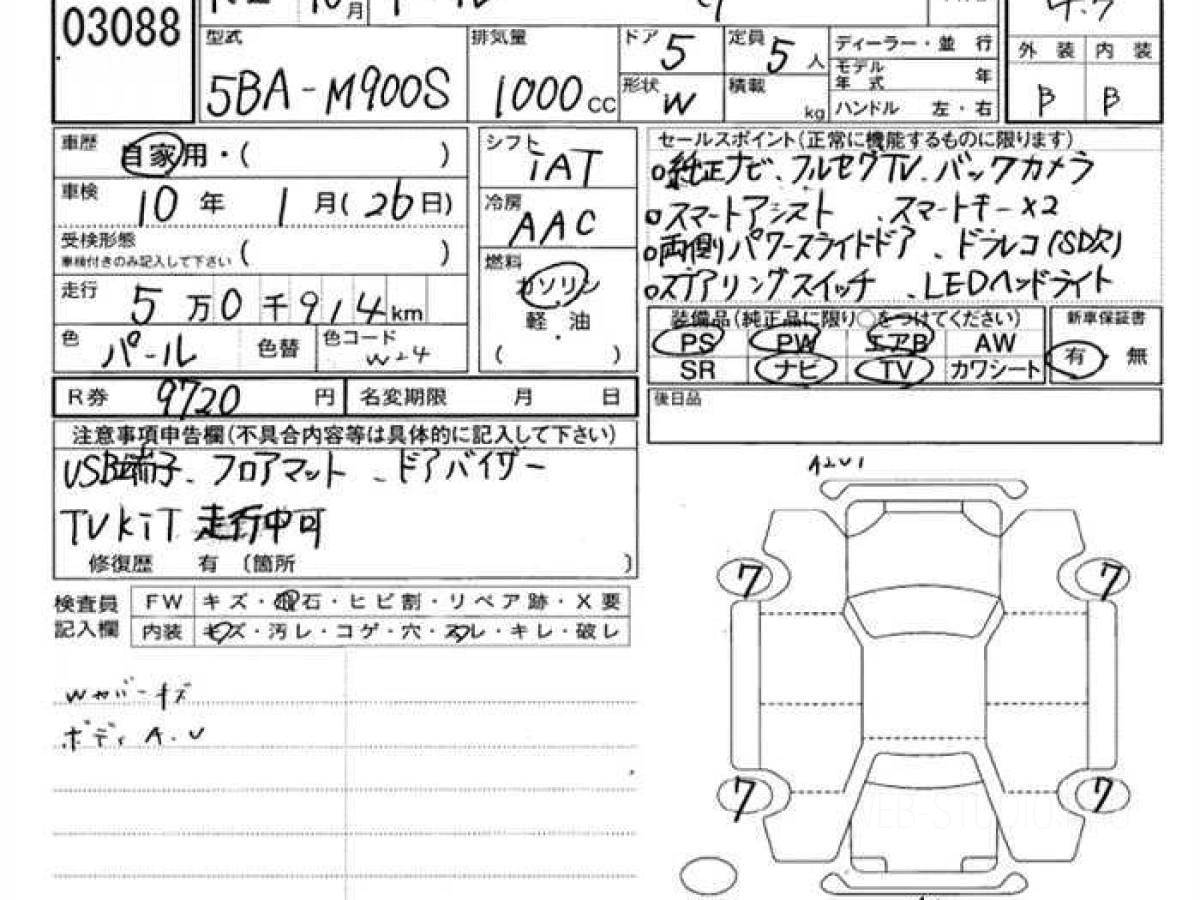 03088
月
型式 5BA-M900S
排気量 1000 CC
ドア 5
定員 5 人
形状 W
積載 kg
ディーラー・並 行
モデル年式 年
ハンドル 左・右
外装 内装
B B
車歴 自家用・( )
車検 10年 1月(26日)
受検形態 ( )
車検付きのみ記入して下さい
走行 5万0千914km
色 パール 色替
色コード W-24
シフト iAT
冷房 AAC
燃料 ガソリン
軽・油
( )
セールスポイント(正常に機能するものに限ります)
○純正ナビ、フルセグTV、バックカメラ
○スマートアシスト 、スマートキーx2
○両側パワースライドドア 、ドラレコ(SD欠)
○ステアリングスイッチ 、LEDヘッドライト
装備品(純正品に限り○をつけてください)
PS PW エアB AW
SR ナビ TV カワシート
新車保証書
有・無
R券 9720 円
名変期限 月 日
後日品
注意事項申告欄(不具合内容等は具体的に記入して下さい)
USB端子、フロアマット 、ドアバイザー
TVkiT 走行中可
修復歴 有 〔箇所 〕
検査員記入欄
FW キズ・飛石・ヒビ割・リペア跡・X要
内装 キズ・汚レ・コゲ・穴・スレ・キレ・破レ
Wカバーキズ
ボディA.U
A2U1
7 7
7 7
WEB-STUDIO